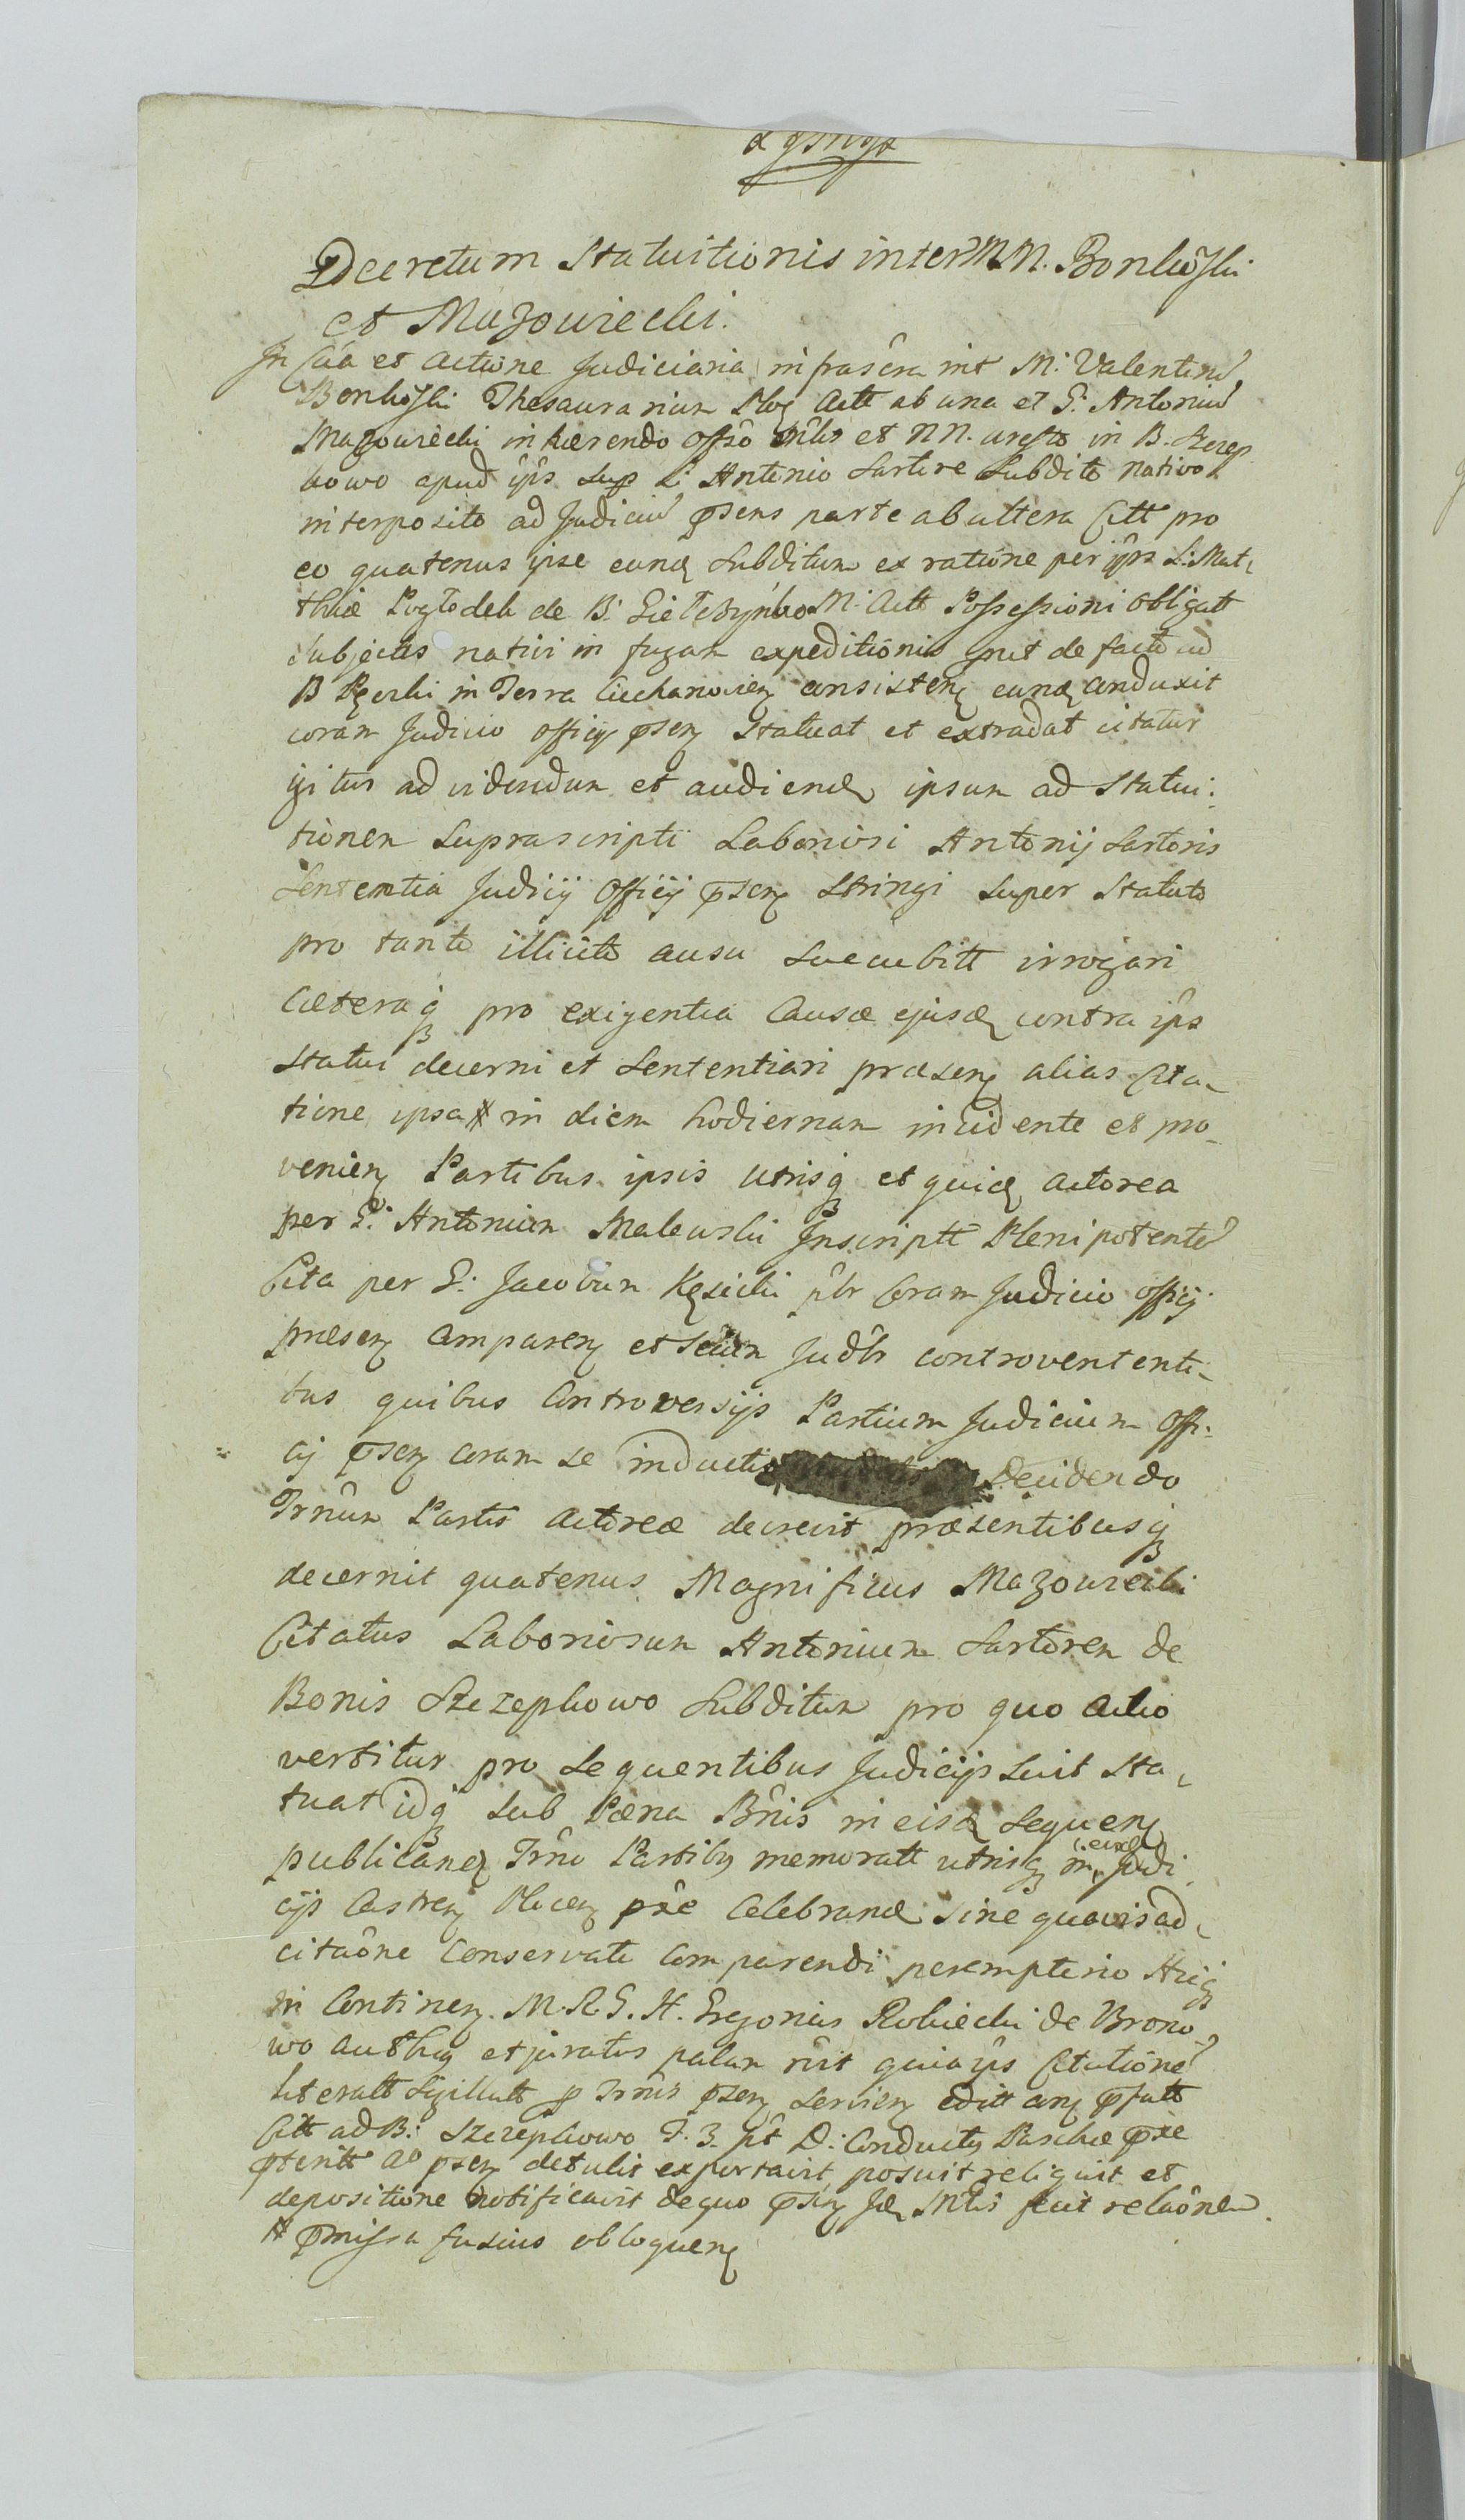 Decretum Statuitionis inter M.M. Bonkowski
et Mazowiecki.
In Cãa et actione Judiciaria infrascra int M. Valentinũ
Bonkowski Thesaurarium Act ab una et G. Antoniũ
Mazowiecki inhærendo offso et NN. aresto in B. Szczep
kowo apud ips sup L: Antonio Sartore Subdito nativo
interposito ad Judiciũ psens parte ab altera Citt pro
eo quatenus ipse eund Subditum ex ratione per ips L: Mat-
thiæ de B. M. Actt Possessioni obligatt
Subjectis nativi in fugam expeditionis de facto ad
B in Terra Ciechanovien consisten eund conduxit
coram Judicio officij psen Statuat et extradat citatur
igitur ad videndum et audiend ipsum ad Statui-
tionem Suprascripti Laboriosi Antonij Sartoris
Sententia Judicij Officij psen Stringi super Statuto
pro tanto illicito ausu succubitt irrogari
Cæteraq pro exigentia Causæ ejusd contra ips
statui decerni et Sententiari præsen alias Cita-
tione ipsa in diem hodiernam incidente et pro-
venien Partibus ipsis utrisq et quid actorea
per G: Antonium Malewski Inscriptt Plenipotentẽ
Cita per G: Jacobum Kęsicki coram Judicio officij
præsen comparen et secum Judlr controvententi-
bus quibus Controversijs Partium Judicium offi-
cij psen coram se inductis Decidendo
Trnũm Partis actoreæ decrevit præsentibusq
decernit quatenus Magnificus Mazowiecki
Citatus Laboriosum Antonium Sartorem de
Bonis Szczepkowo Subditum pro quo actio
vertitur pro Sequentibus Judicijs Suit Sta-
tuat idq sub Pæna Bnis in eisd Sequen
publicand Trno Partibus memoratt utrisq in eisd Judi
cijs Castren Plocen pse Celebrand sine quavis ad-
citaône Conservato Comparendi peremptorio
in Continen. M.R.G.H. Gregorius Rokicki de Brono-
wo authen et juratus palam rnt quia ips Citatione
literatt Sigillatt p Trnis psen servien editt
Citt ad B: Szczepkowo F. 3. pt D: Conductus Paschæ pxe
pteritt Ao psen detulit exportavit posuit reliquit et
depositione notificavit de quo psen fecit relaônem.
A pmissa fusius obloquen